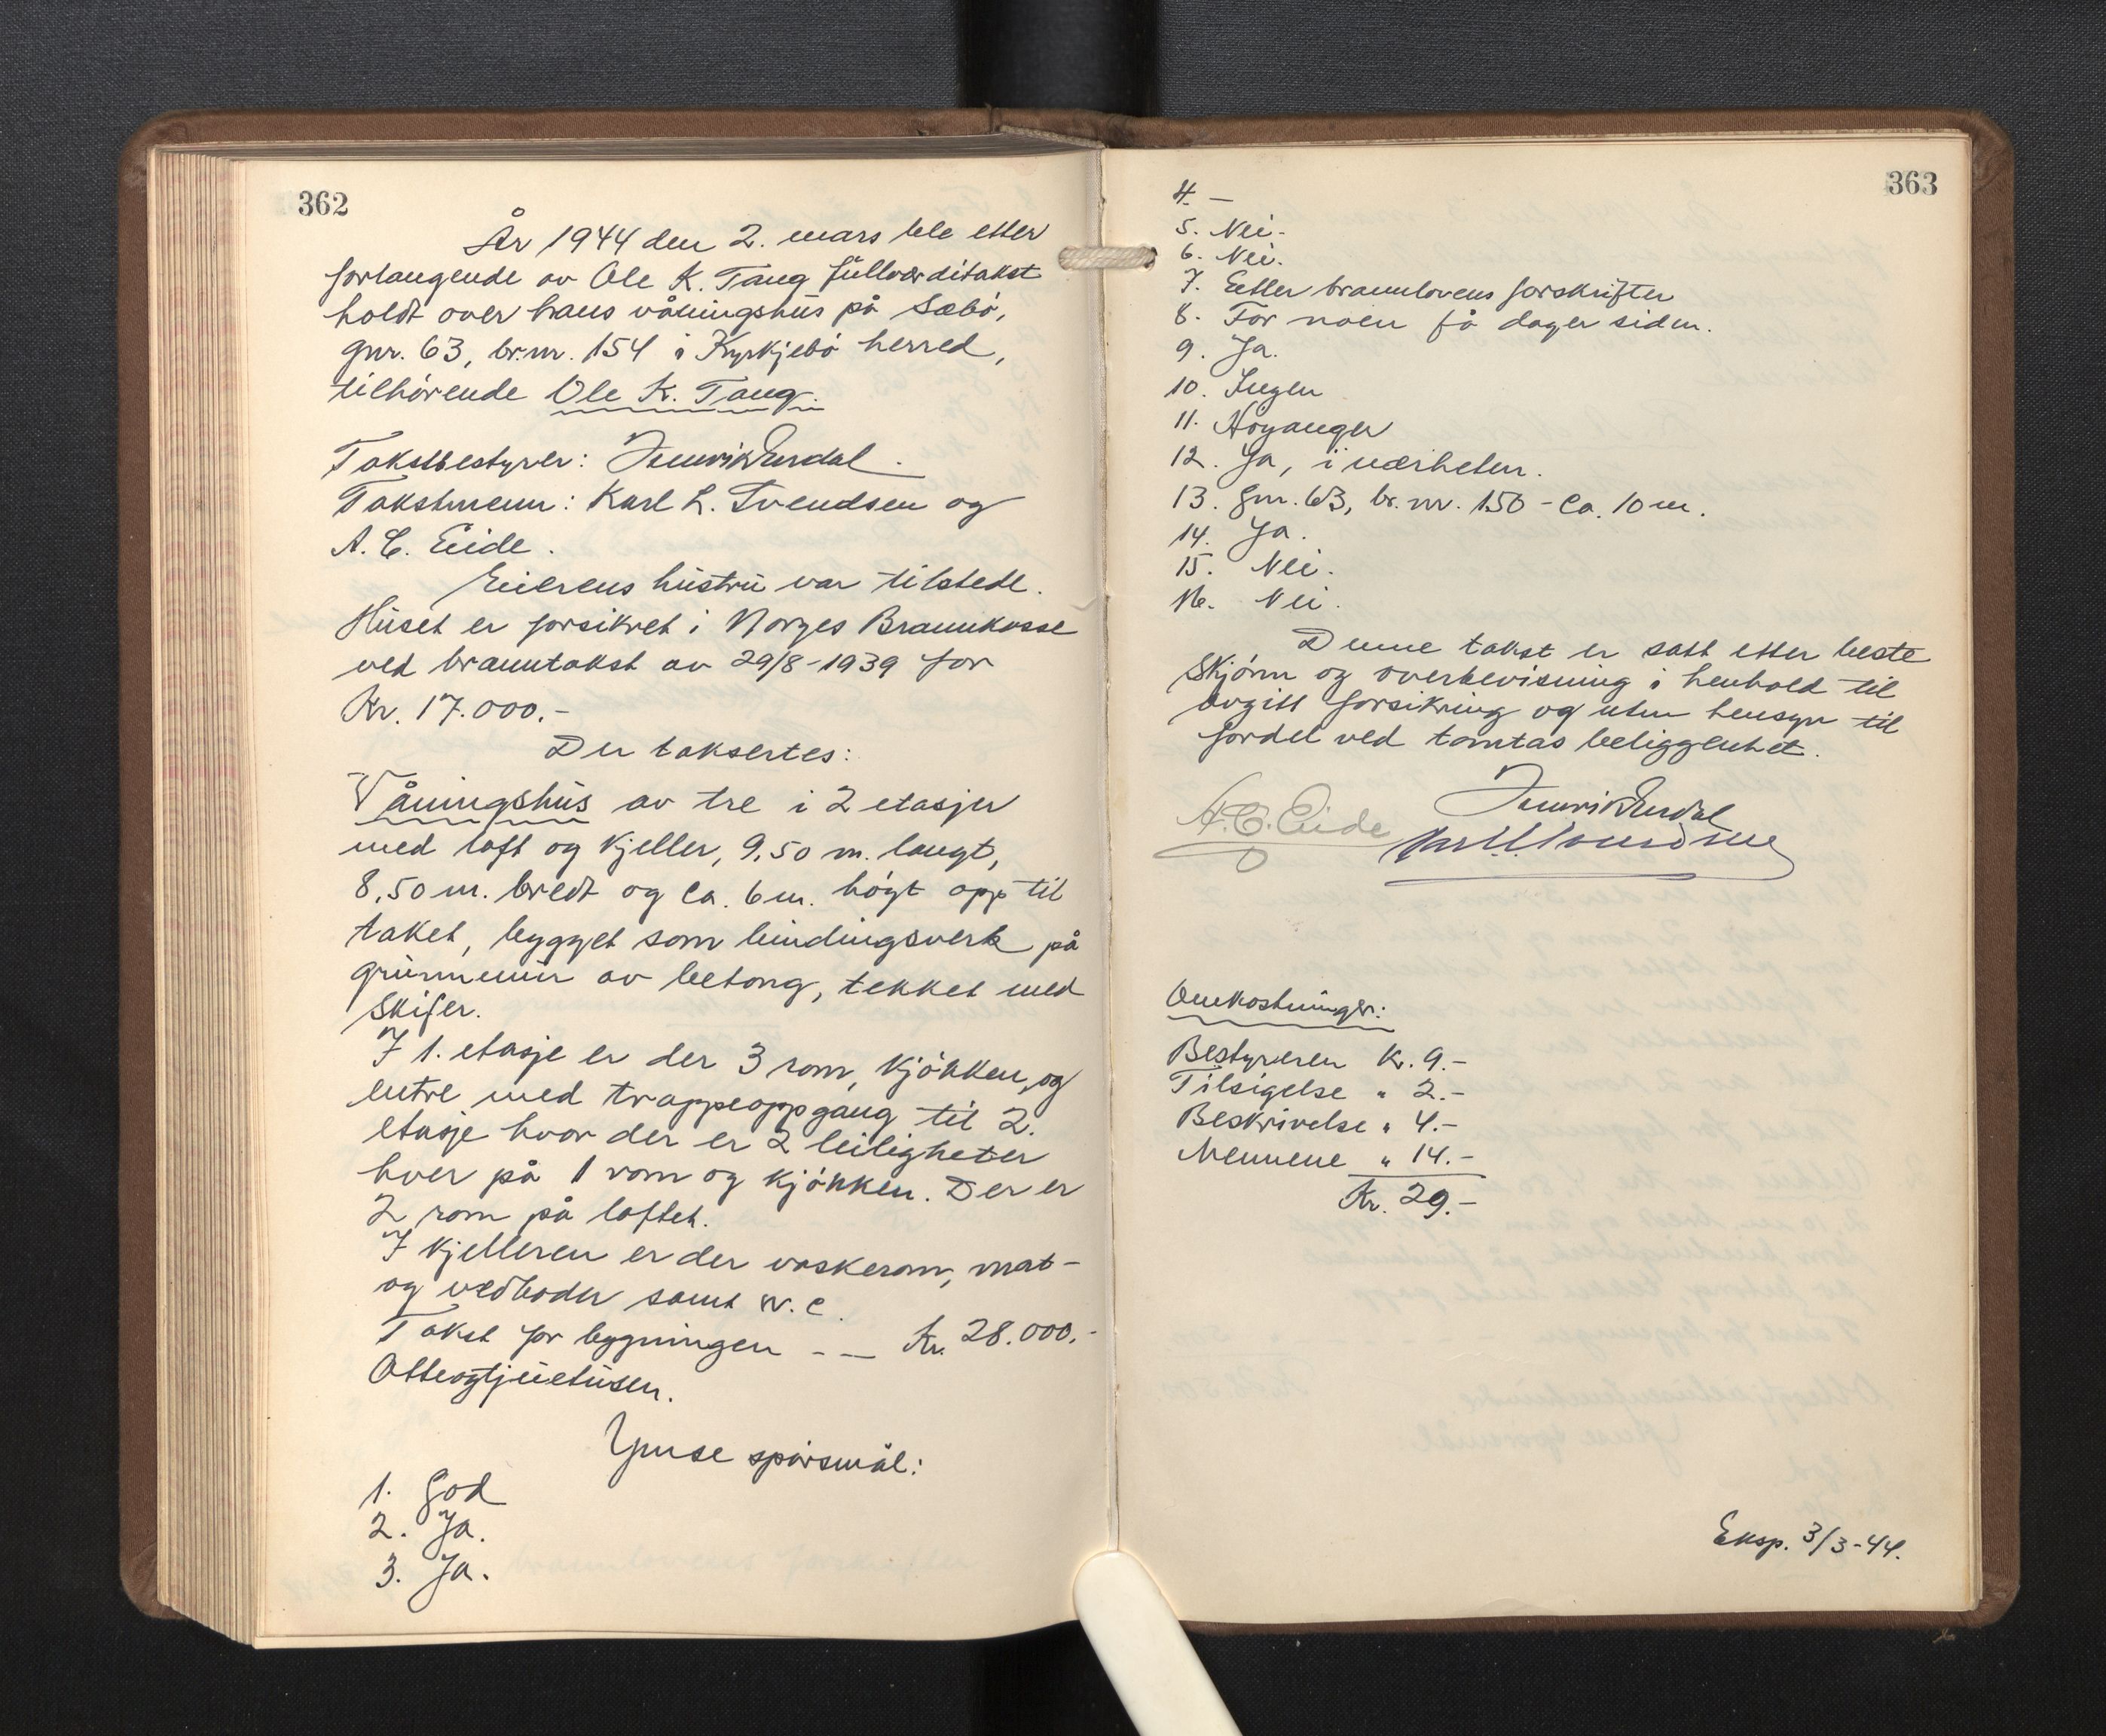 362
År 1944 den 2. mars ble etter
forlangende av Ole K. Tang fullverditakst
holdt over hans våningshus på Sæbö,
gnr. 63, br.nr. 154 i Kyrkjebö herred,
tilhörende Ole K. Tang.
Takstbestyrer: Henrik Erdal.
Takstmenn: Karl L. Svendsen og
A. C. Eide.
Eierens hustru var tilstede.
Huset er forsikret i Norges Brannkasse
ved branntakst av 29/8-1939 for
Kr. 17.000.-
Der taksertes:
Våningshus av tre i 2 etasjer
med loft og kjeller, 9,50 m. langt,
8,50 m. bredt og ca. 6 m. högt opp til
taket, bygget som bindingsverk på
grunnmur av betong, tekket med
skifer.
I 1. etasje er der 3 rom, kjökken, og
entre med trappeoppgang til 2.
etasje hvor der er 2 leiligheter
hver på 1 rom og kjökken. Der er
2 rom på loftet.
I kjelleren er der vaskerom, mat-
og vedboder samt w.c.
Takst for bygningen - — Kr. 28.000.-
Otteogtjuetusen.
Ymse spörsmål:
1. God
2. Ja.
3. Ja.
363
4. -
5. Nei.
6. Nei.
7. Eetter brannlovens forskrifter
8. For noen få dager siden.
9. Ja.
10. Ingen
11. Höyanger
12. Ja, i nærheten.
13. gnr. 63, br. nr. 150 - ca. 10 m.
14. Ja.
15. Nei.
16. Nei.
Denne takst er satt etter beste
skjönn og overbevisning i henhold til
avgitt forsikring og uten hensyn til
fordel ved tomtas beliggenhet.
Henrik Erdal
A. C. Eide Karl L. Svendsen
Omkostninger:
Bestyreren Kr. 9.-
Tilsigelse " 2.-
Beskrivelse " 4.-
Mennene " 14.-
Kr. 29.-
Eksp. 3/3-44.